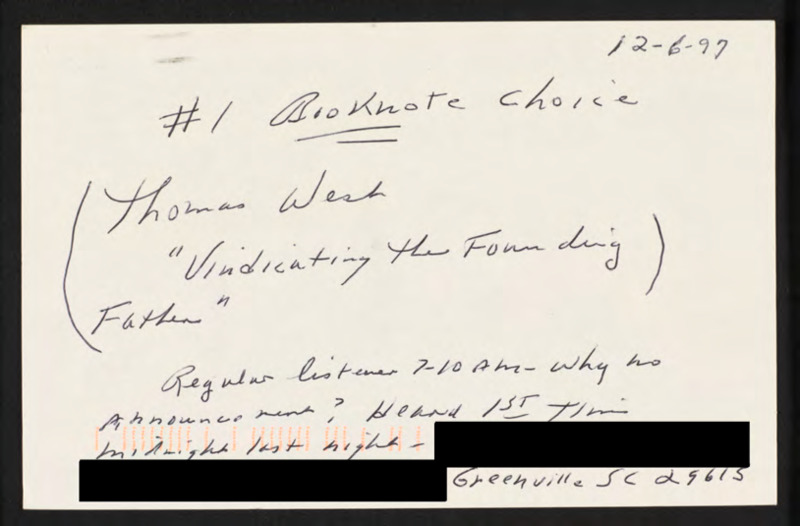 12-6-97
#1 Booknote Choice
(Thomas West
"Vindicating the Founding)
Father"
Regular listener 7-10 AM - why no
announcement? Heard 1ST time
midnight last night -
Greenville SC 29615